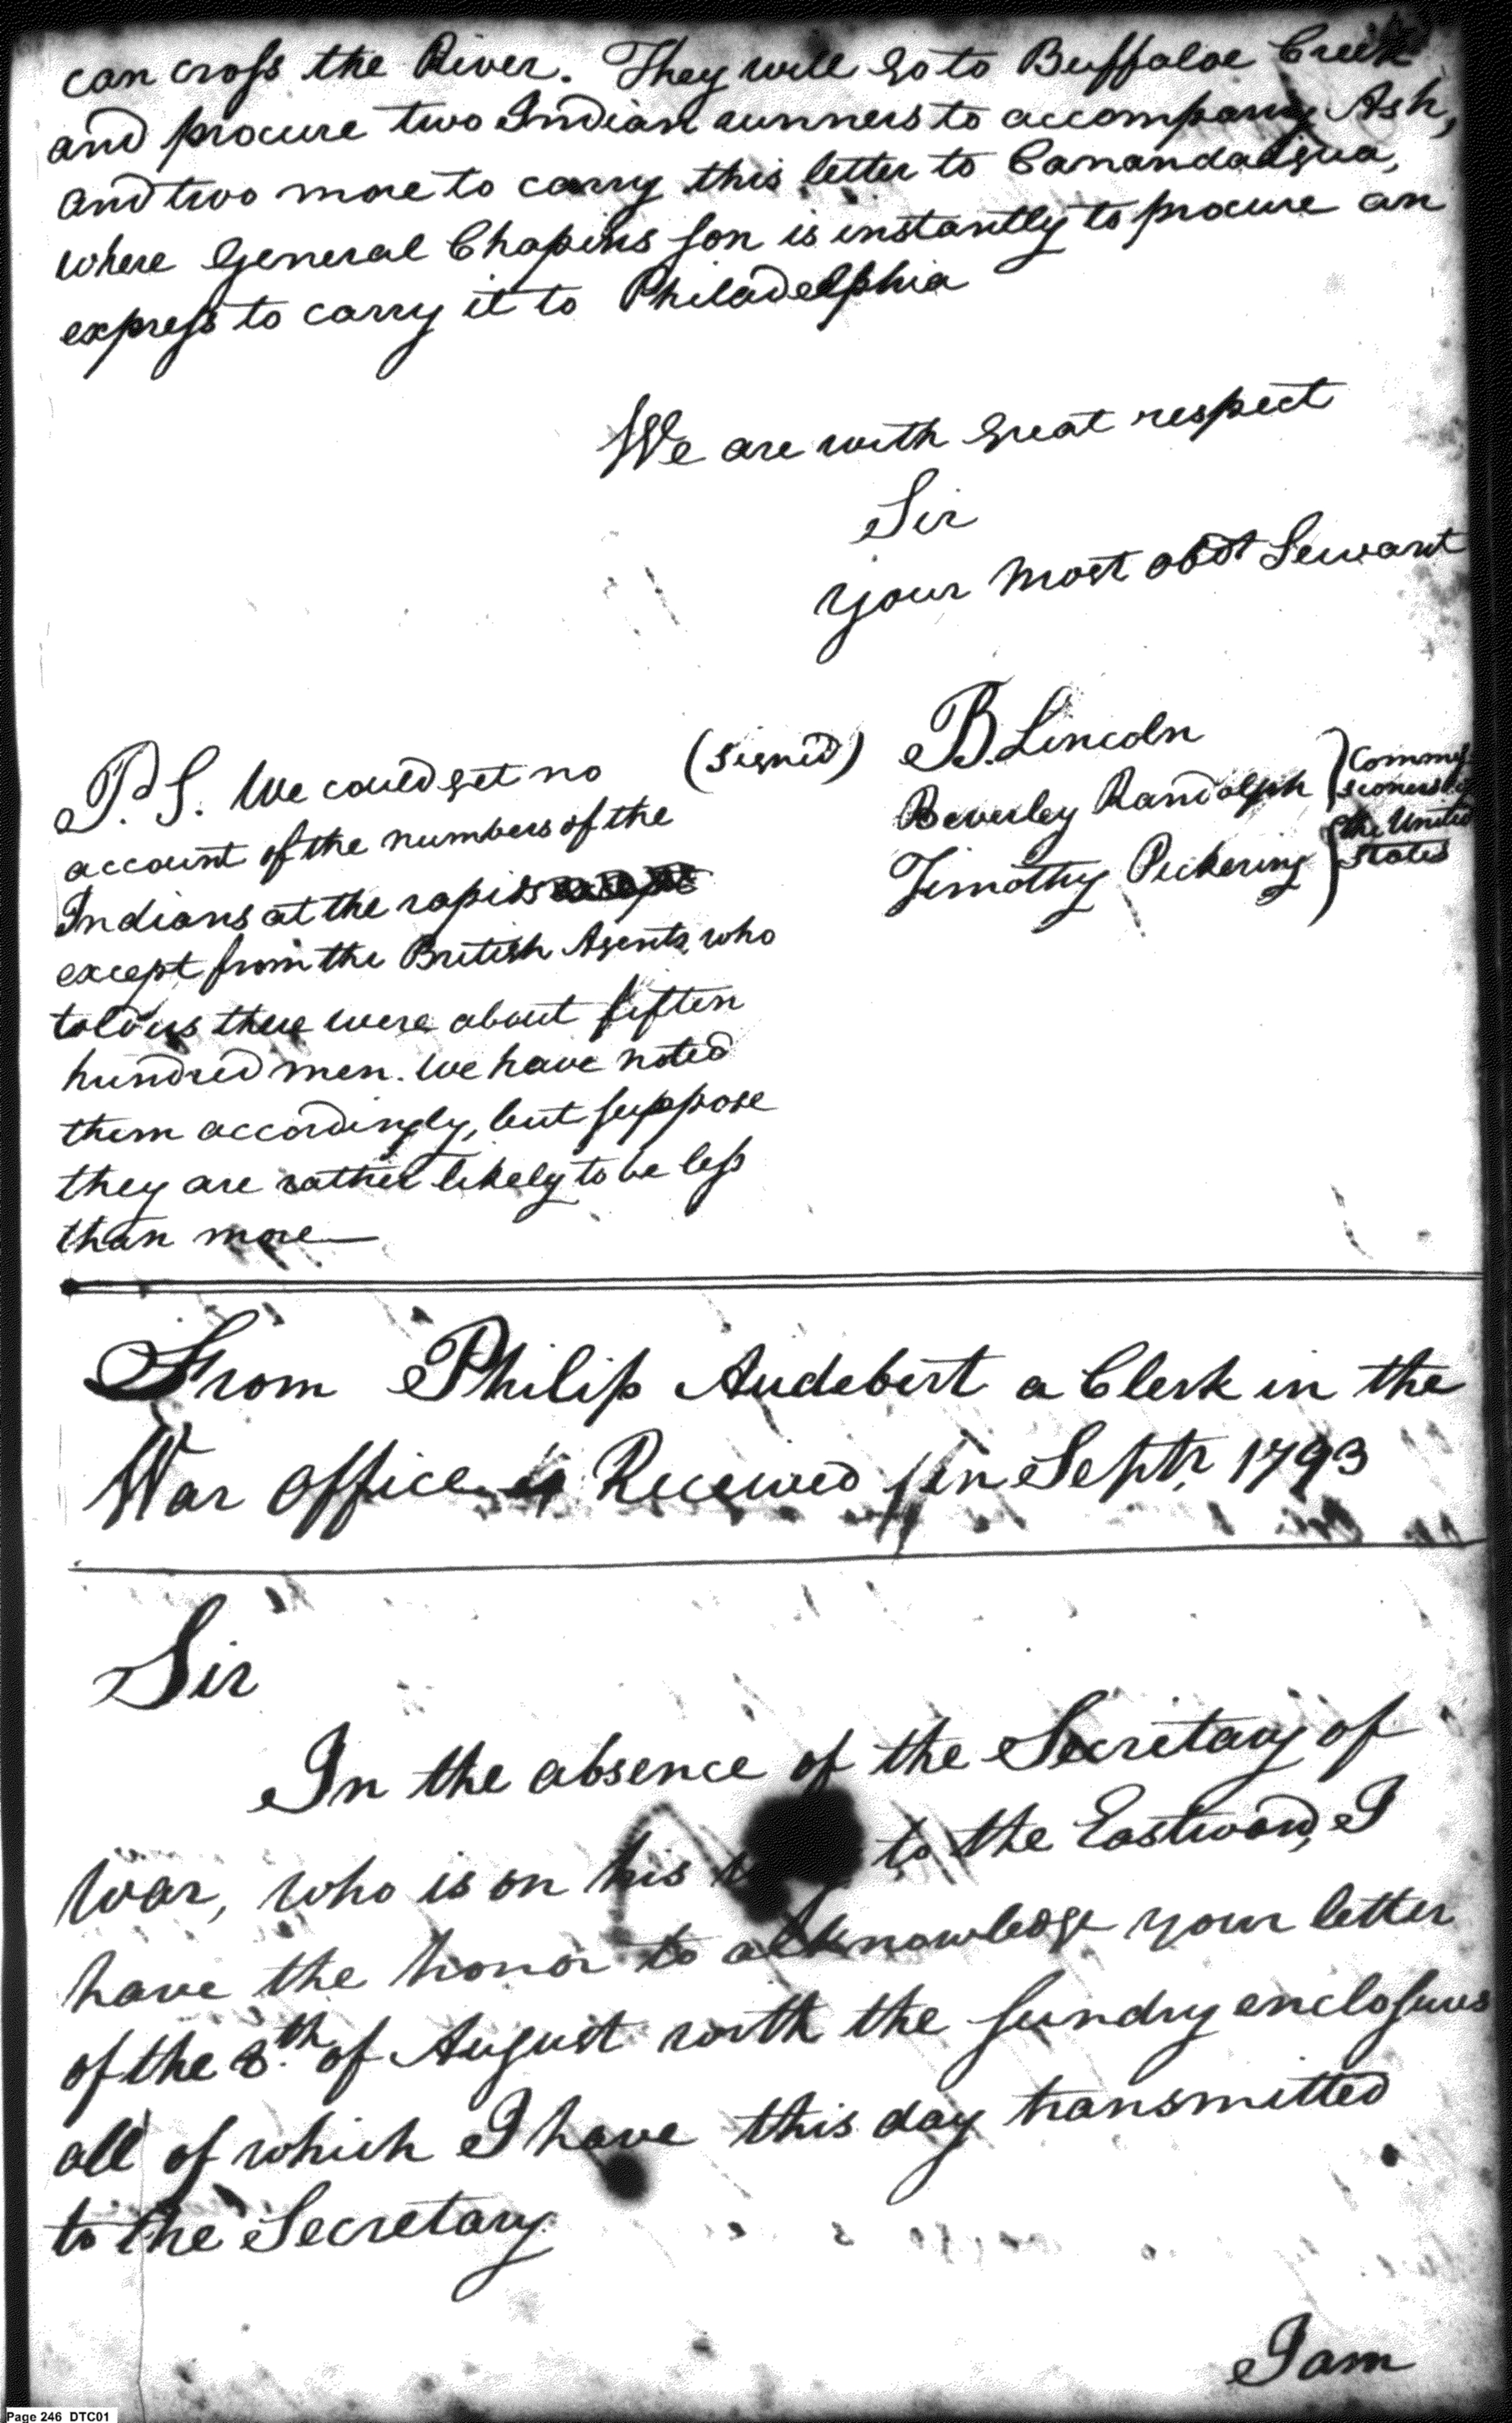 can cross the River. They will go to Buffaloe Creek
and procure two Indian runners to accompany Ash,
and two more to carry this letter to Canandaigua,
where General Chapins son is instantly to procure an
express to carry it to Philadelphia
We are with great respect
Sir
your most obdt Servant
(signed) B. Lincoln
Beverley Randolph
Timothy Pickering
Commis
sioners of
the United
States
P.S. We could get no
account of the numbers of the
Indians at the rapids
except from the British Agents, who
told us there were about fifteen
hundred men. We have noted
them accordingly, but suppose
they are rather likely to be less
than more—
From Philip Audebert a Clerk in the
War Office Received in Septr. 1793
Sir
In the absence of the Secretary of
War, who is on his to the Eastward, I
have the honor to acknowledge your letter
of the 8th of August with the sundry enclosures
all of which I have this day transmitted
to the Secretary
I am
Page 246 DTC01